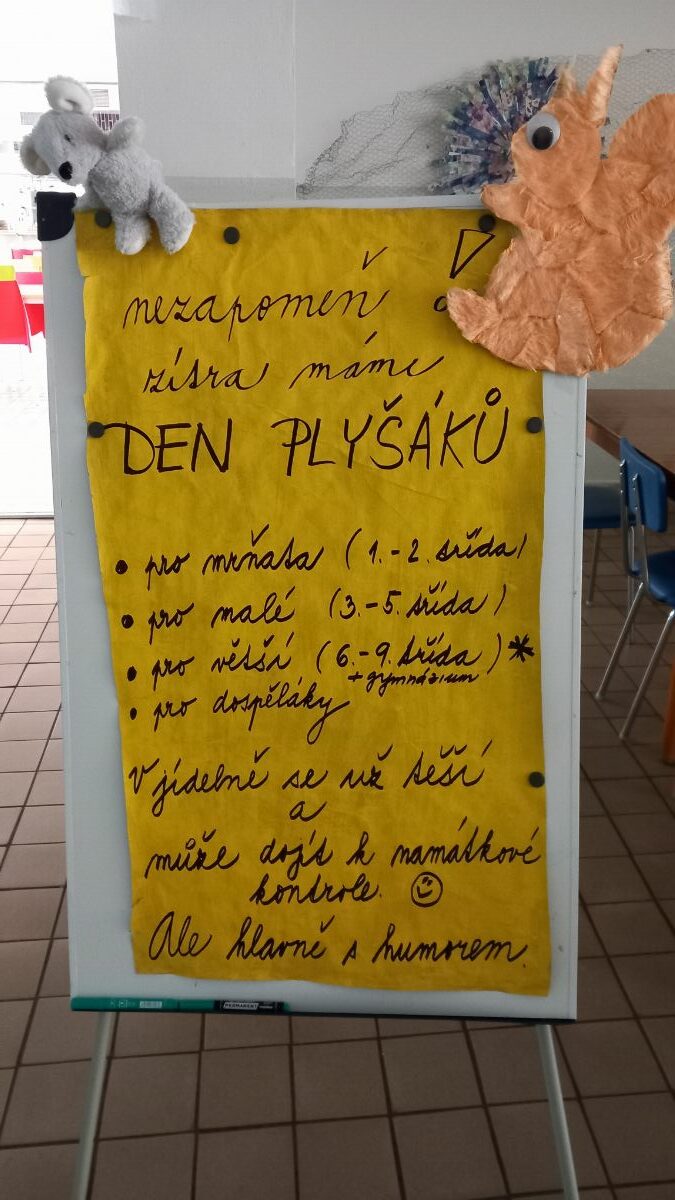 nezapomeň !
zítra máme
DEN PLYŠÁKŮ
• pro mrňata (1.-2. třída)
• pro malé (3.-5. třída)
• pro větší (6.-9. třída) *
+ gymnázium
• pro dospěláky
V jídelně se už těší
a
může dojít k namátkové
kontrole. ☺
Ale hlavně s humorem.
PERMANENT